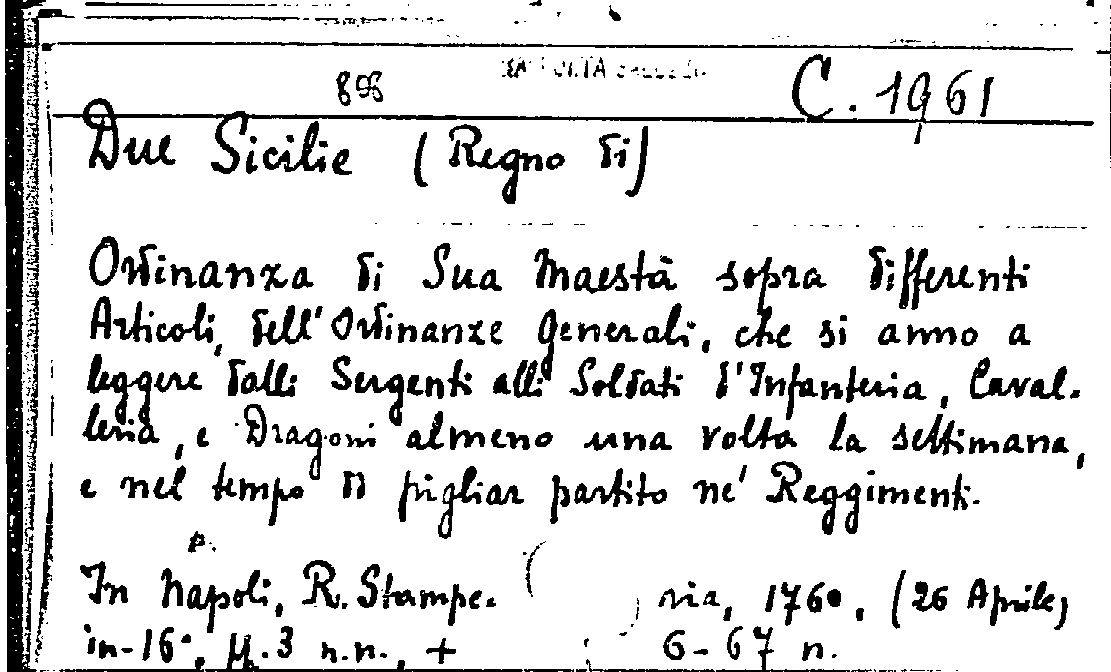 898 C. 1961
Due Sicilie (Regno di)
Ordinanza di Sua Maestà sopra differenti
Articoli, dell'Ordinanze Generali, che si anno a
leggere dalli Sergenti alli Soldati d'Infanteria, Caval-
leria, e Dragoni almeno una volta la settimana,
e nel tempo di pigliar partito ne' Reggimenti.
In Napoli, R. Stampe- ria, 1760, (26 Aprile)
in-16°, pp. 3 n.n., + 6-67 n.